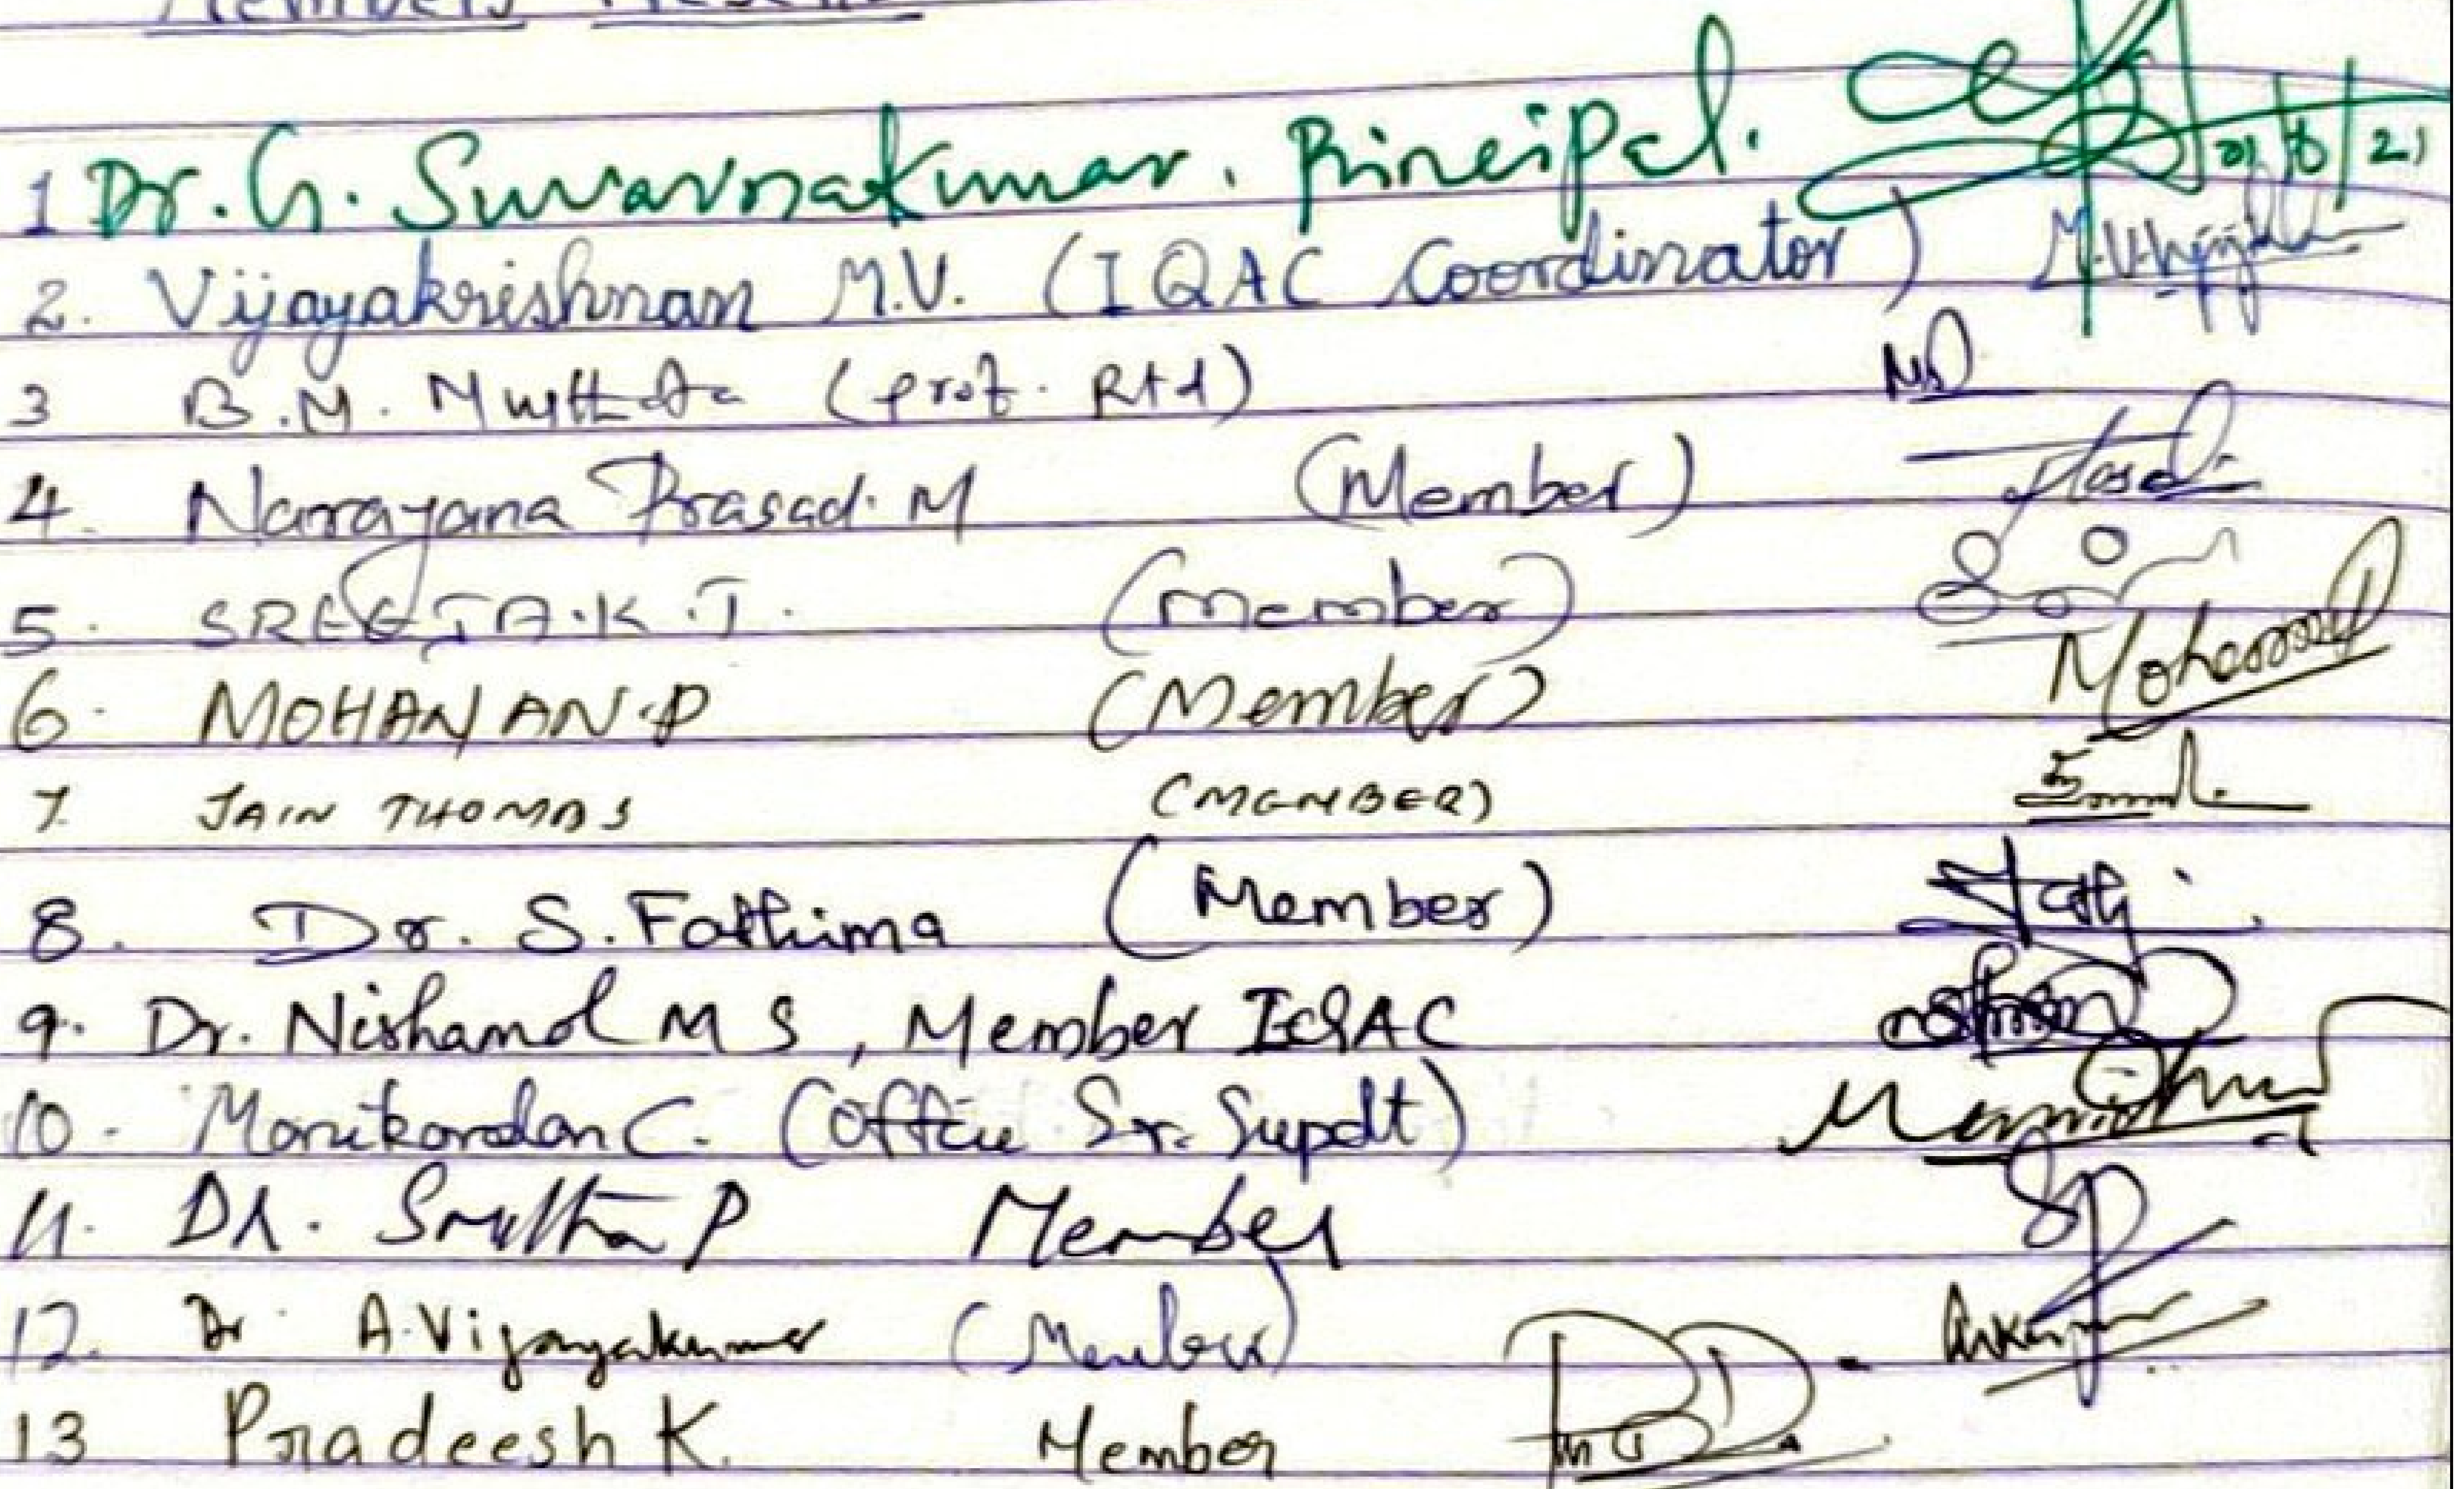 Members Present
1 Dr. G. Suvarnakumar. Principal. 21
2. Vijayakrishnan M.V. (IQAC Coordinator)
3 B.M. (Prof. Rtd)
4. Narayana Prasad. M (Member)
5. SREEJA.K.T. (Member)
6. MOHANAN.P (Member) Mohanan
7. JAIN THOMAS (MEMBER)
8. Dr. S. Fathima (Member)
9. Dr. Nishamol M S, Member IQAC
10. Manikandan C. (Office Sr. Supdt)
11. Dr. P Member
12. Dr A. Vijayakumar (Member)
13 Pradeesh K. Member